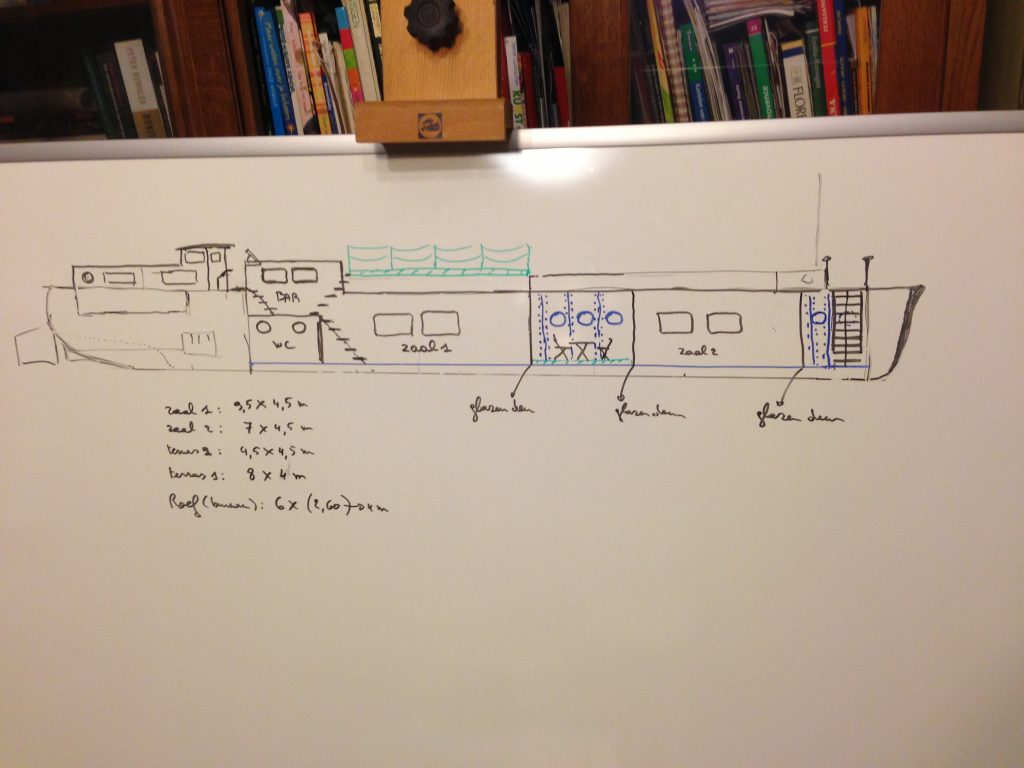 BAR
WC
zaal 1
zaal 2
glazen deur
glazen deur
glazen deur
zaal 1 : 9,5 x 4,5 m
zaal 2 : 7 x 4,5 m
terras 2 : 4,5 x 4,5 m
terras 1 : 8 x 4 m
Roef : 6 x (2,60) → 4 m
PETER
FLOR